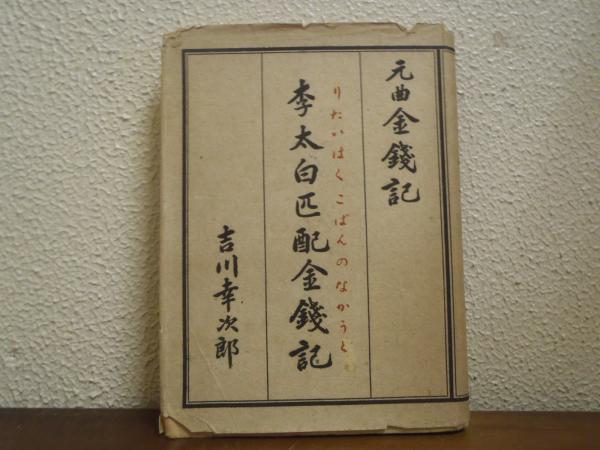 元曲金錢記
李太白匹配金錢記
りたいはくこばんのなかうど
吉川幸次郎